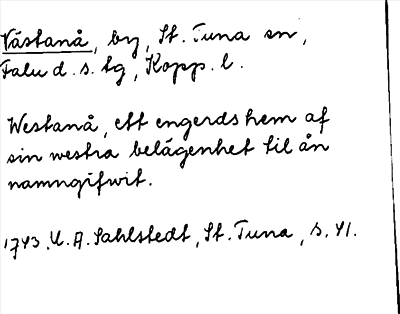 Västanå, by, St. Tuna sn,
Falu d. s. tg, Kopp. l.
Westanå, ett engerdshem af
sin westra belägenhet til ån
namngifwit.
1743. U. A. Sahlstedt, St. Tuna, s. 41.